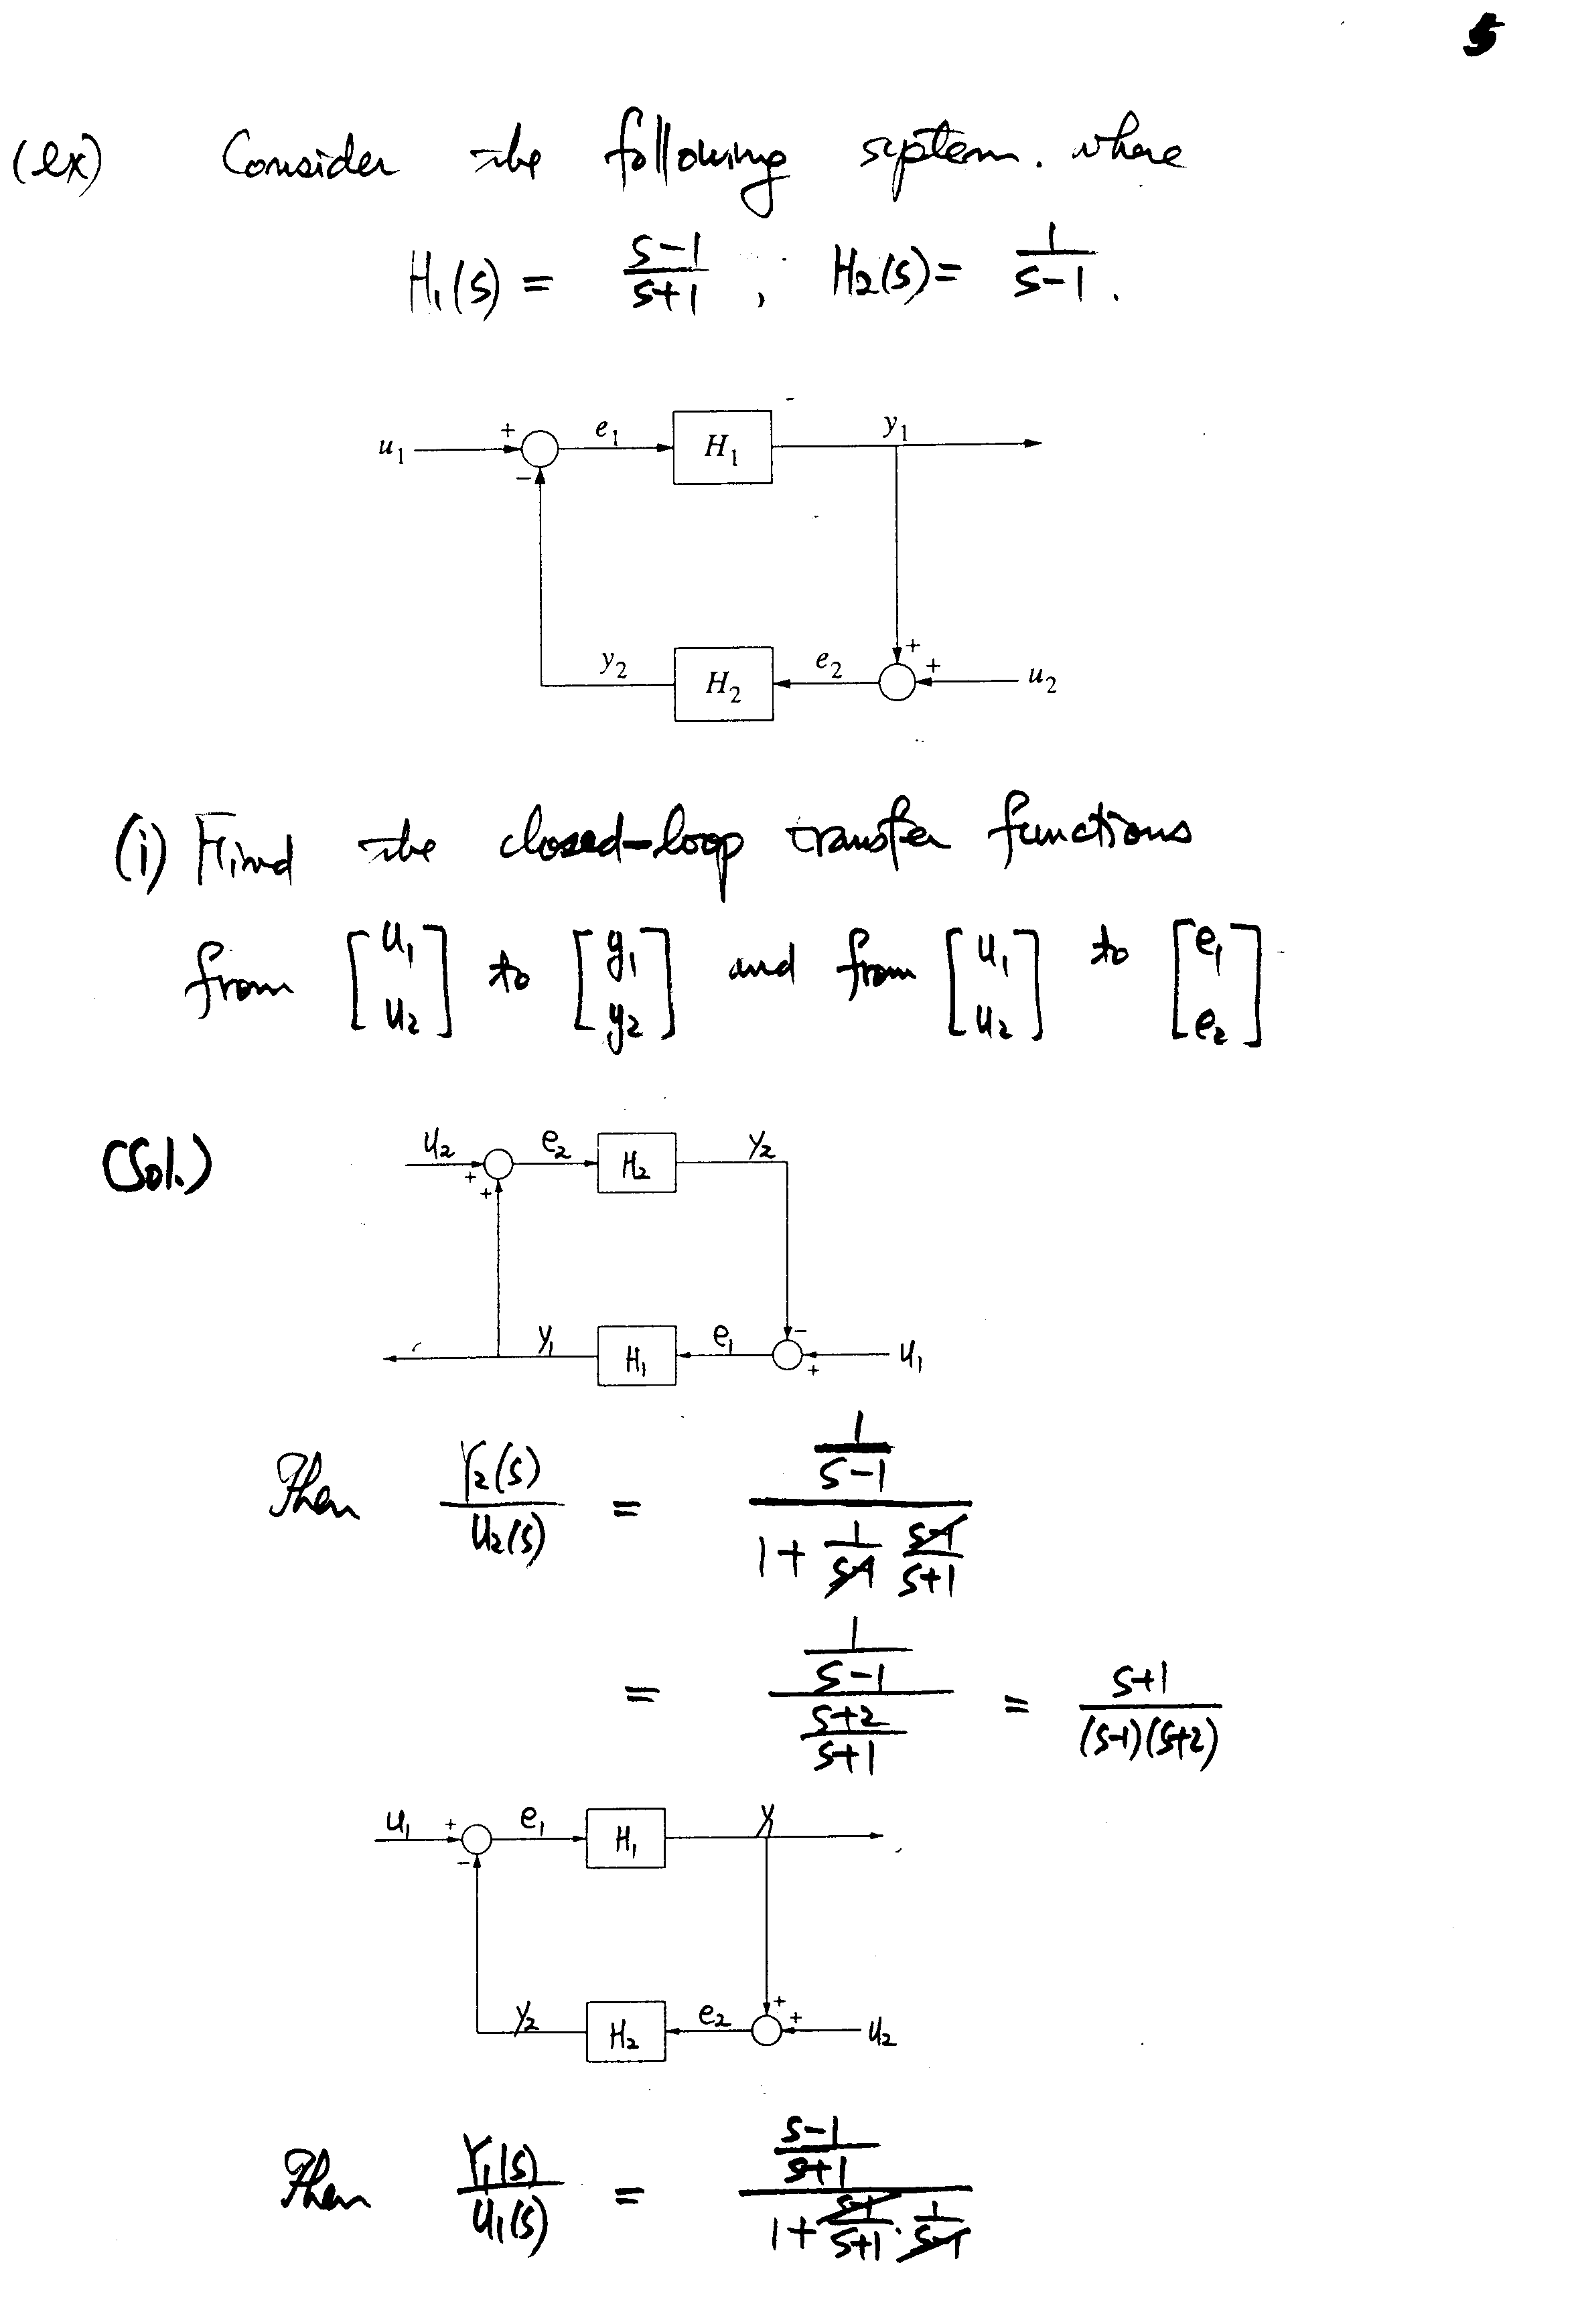 5
(ex) Consider the following system. where
H₁(s) = (s-1)/(s+1) ; H₂(s) = 1/(s-1).
u₁ + e₁ H₁ y₁
−
y₂ H₂ e₂ + + u₂
(i) Find the closed-loop transfer functions
from [u₁ u₂] to [y₁ y₂] and from [u₁ u₂] to [e₁ e₂]
(Sol.)
u₂ e₂ H₂ y₂
+ +
y₁ H₁ e₁ − + u₁
Then Y₂(s)/U₂(s) = (1/(s-1)) / (1 + 1/(s-1) (s-1)/(s+1))
= (1/(s-1)) / ((s+2)/(s+1)) = (s+1)/((s-1)(s+2))
u₁ + e₁ H₁ y₁
−
y₂ H₂ e₂ + + u₂
Then Y₁(s)/U₁(s) = ((s-1)/(s+1)) / (1 + (s-1)/(s+1) · 1/(s-1))